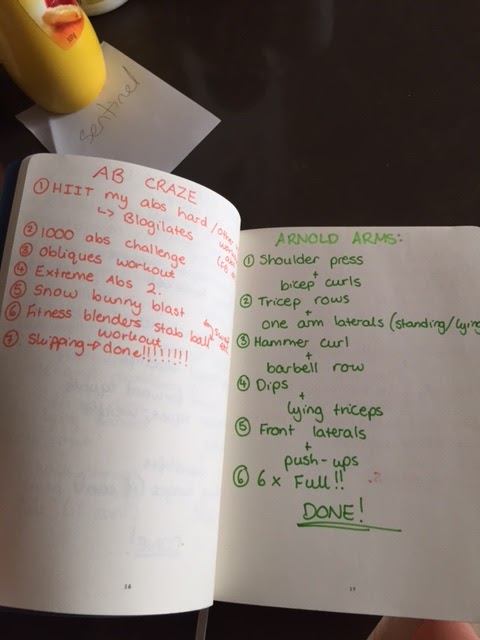 sentinel
AB CRAZE
① HIIT my abs hard / other
↳ Blogilates
② 1000 abs challenge
③ Obliques workout
④ Extreme Abs 2.
⑤ Snow bunny blast
⑥ Fitness blenders stab ball
workout
⑦ Skipping → done!!!!!!!!
16
ARNOLD ARMS:
① Shoulder press
+
bicep curls
② Tricep rows
+
one arm laterals (standing/lying
③ Hammer curl
+
barbell row
④ Dips
+
lying triceps
⑤ Front laterals
+
push-ups
⑥ 6 x Full!!
DONE!
17